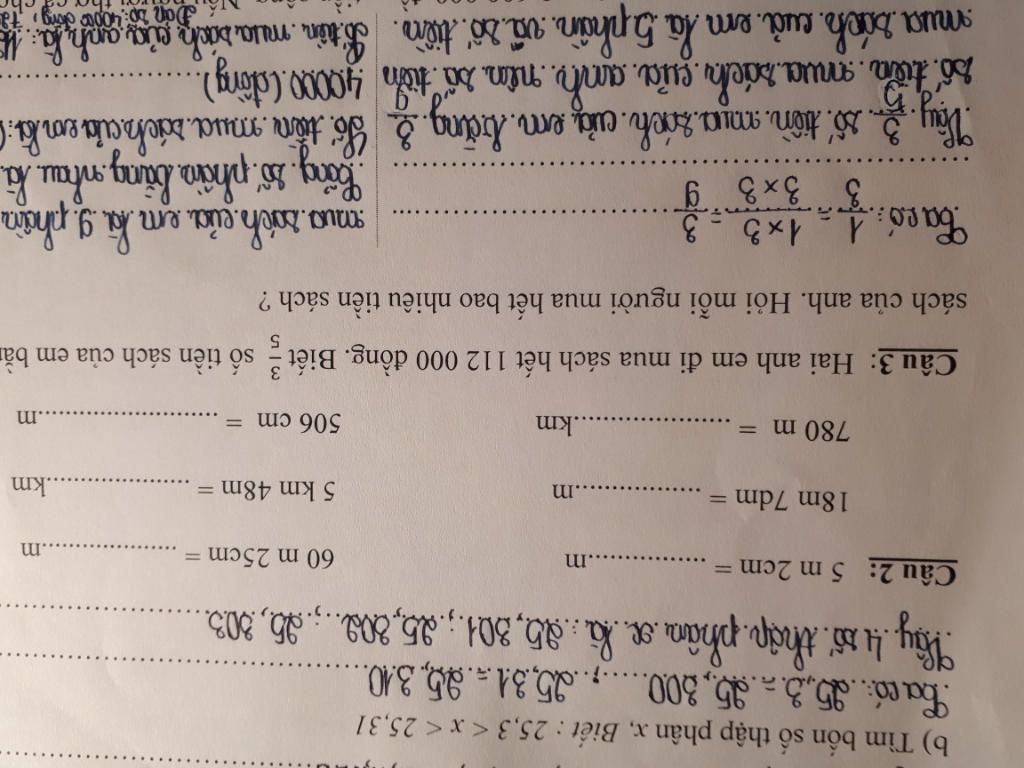 b) Tìm bốn số thập phân x, Biết : 25,3 < x < 25,31
Ta có: 25,3 = 25,300 ; 25,31 = 25,310
Vậy 4 số thập phân x là : 25,301 ; 25,302 ; 25,303
Câu 2: 5 m 2cm = ..................m 60 m 25cm = ....................m
18m 7dm = ..................m 5 km 48m = ......................km
780 m = ......................km 506 cm = ..........................m
Câu 3: Hai anh em đi mua sách hết 112 000 đồng. Biết 3/5 số tiền sách của em
sách của anh. Hỏi mỗi người mua hết bao nhiêu tiền sách ?
Ta có: 1/3 = 1 × 3 / 3 × 3 = 3/9
Vậy 3/5 số tiền mua sách của em bằng 3/9
số tiền mua sách của anh nên số tiền
mua sách của em là 5 phần và số tiền
mua sách của em là 9 phần
Tổng số phần bằng nhau là
Số tiền mua sách của em là:
40000 (đồng)
Số tiền mua sách của anh là: